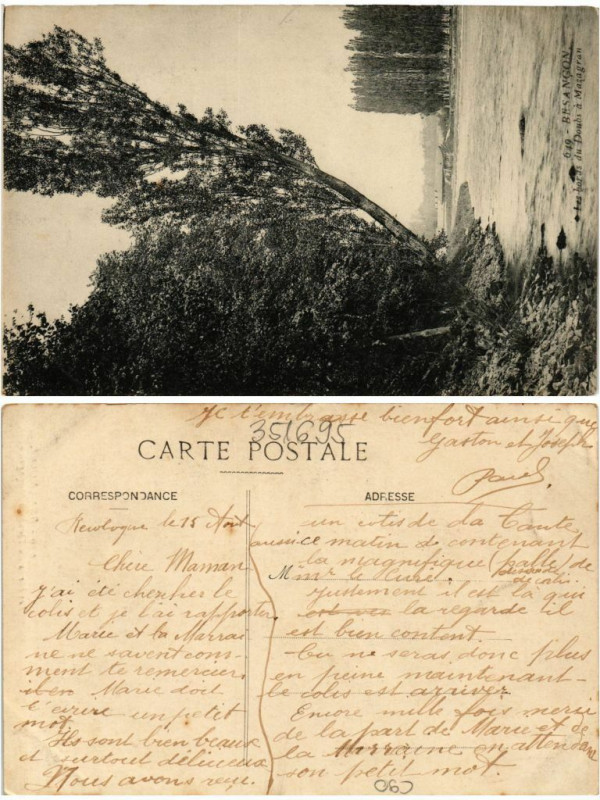 649 - BESANÇON
Les bords du Doubs à Mazagran
Je t'embrasse bien fort ainsi que
Gaston et Joseph
351695
CARTE POSTALE
CORRESPONDANCE
ADRESSE
le 15 Août
Chère Maman
J'ai été chercher le
colis et je l'ai rapporter
Marie et la Marrai
ne ne savent com-
ment te remercier
Marie doit
t'écrire un petit
mot
Ils sont bien beaux
et surtout délicieux
Nous avons reçu
aussi ce matin
un colis de la Tante
contenant
la magnifique (
) de
M
mr le curé.
justement il est là qui
la regarde il
est bien content.
Tu ne seras donc plus
en peine maintenant
le colis est arrivé.
Encore mille fois merci
de la part de Marie et de
la Marraine en attendant
son petit mot.
060